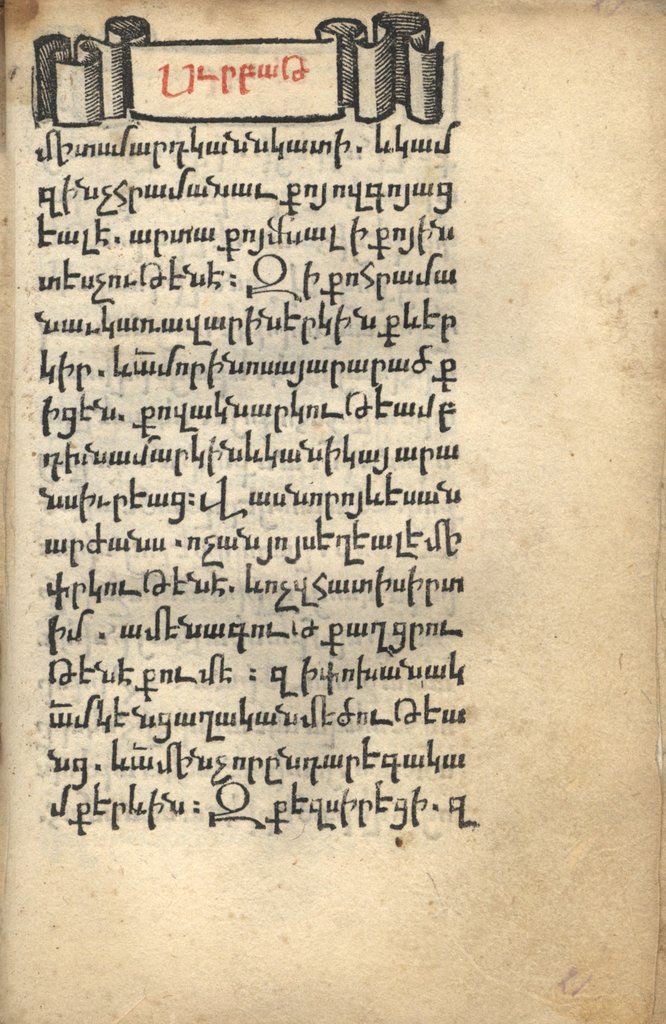 Ուրբաթ
միտամարդկաննսկատի. և կամ
զինչհրամանաւ քոյովգոյաց
եալէ. արտաքոյմնալ ի քոյին
տեսչութենէ : Զ ի քո հրամա
նաւ կառավարին երկինք և եր
կիր. և ամ որ ի նոսա յարարածք
ի ցեն. քովակնարկութեամբ
դիւնամարկին և կանիկայ արա
նսիւրեաց : Վասնորոյևես ան
արժանս . ոչ անյոյս եղեալ եմ ի
փրկութենէ. և ոչ վհատիսիրտ
իմ . ամենագութ քաղցրու
թենէ քումէ : զ ի փոխանակ
ամ կենցաղական մեծութեա
նց. և ամ ինչ որ ընդ արեգակա
մք երևին : Զ քեզ սիրեցի. զ